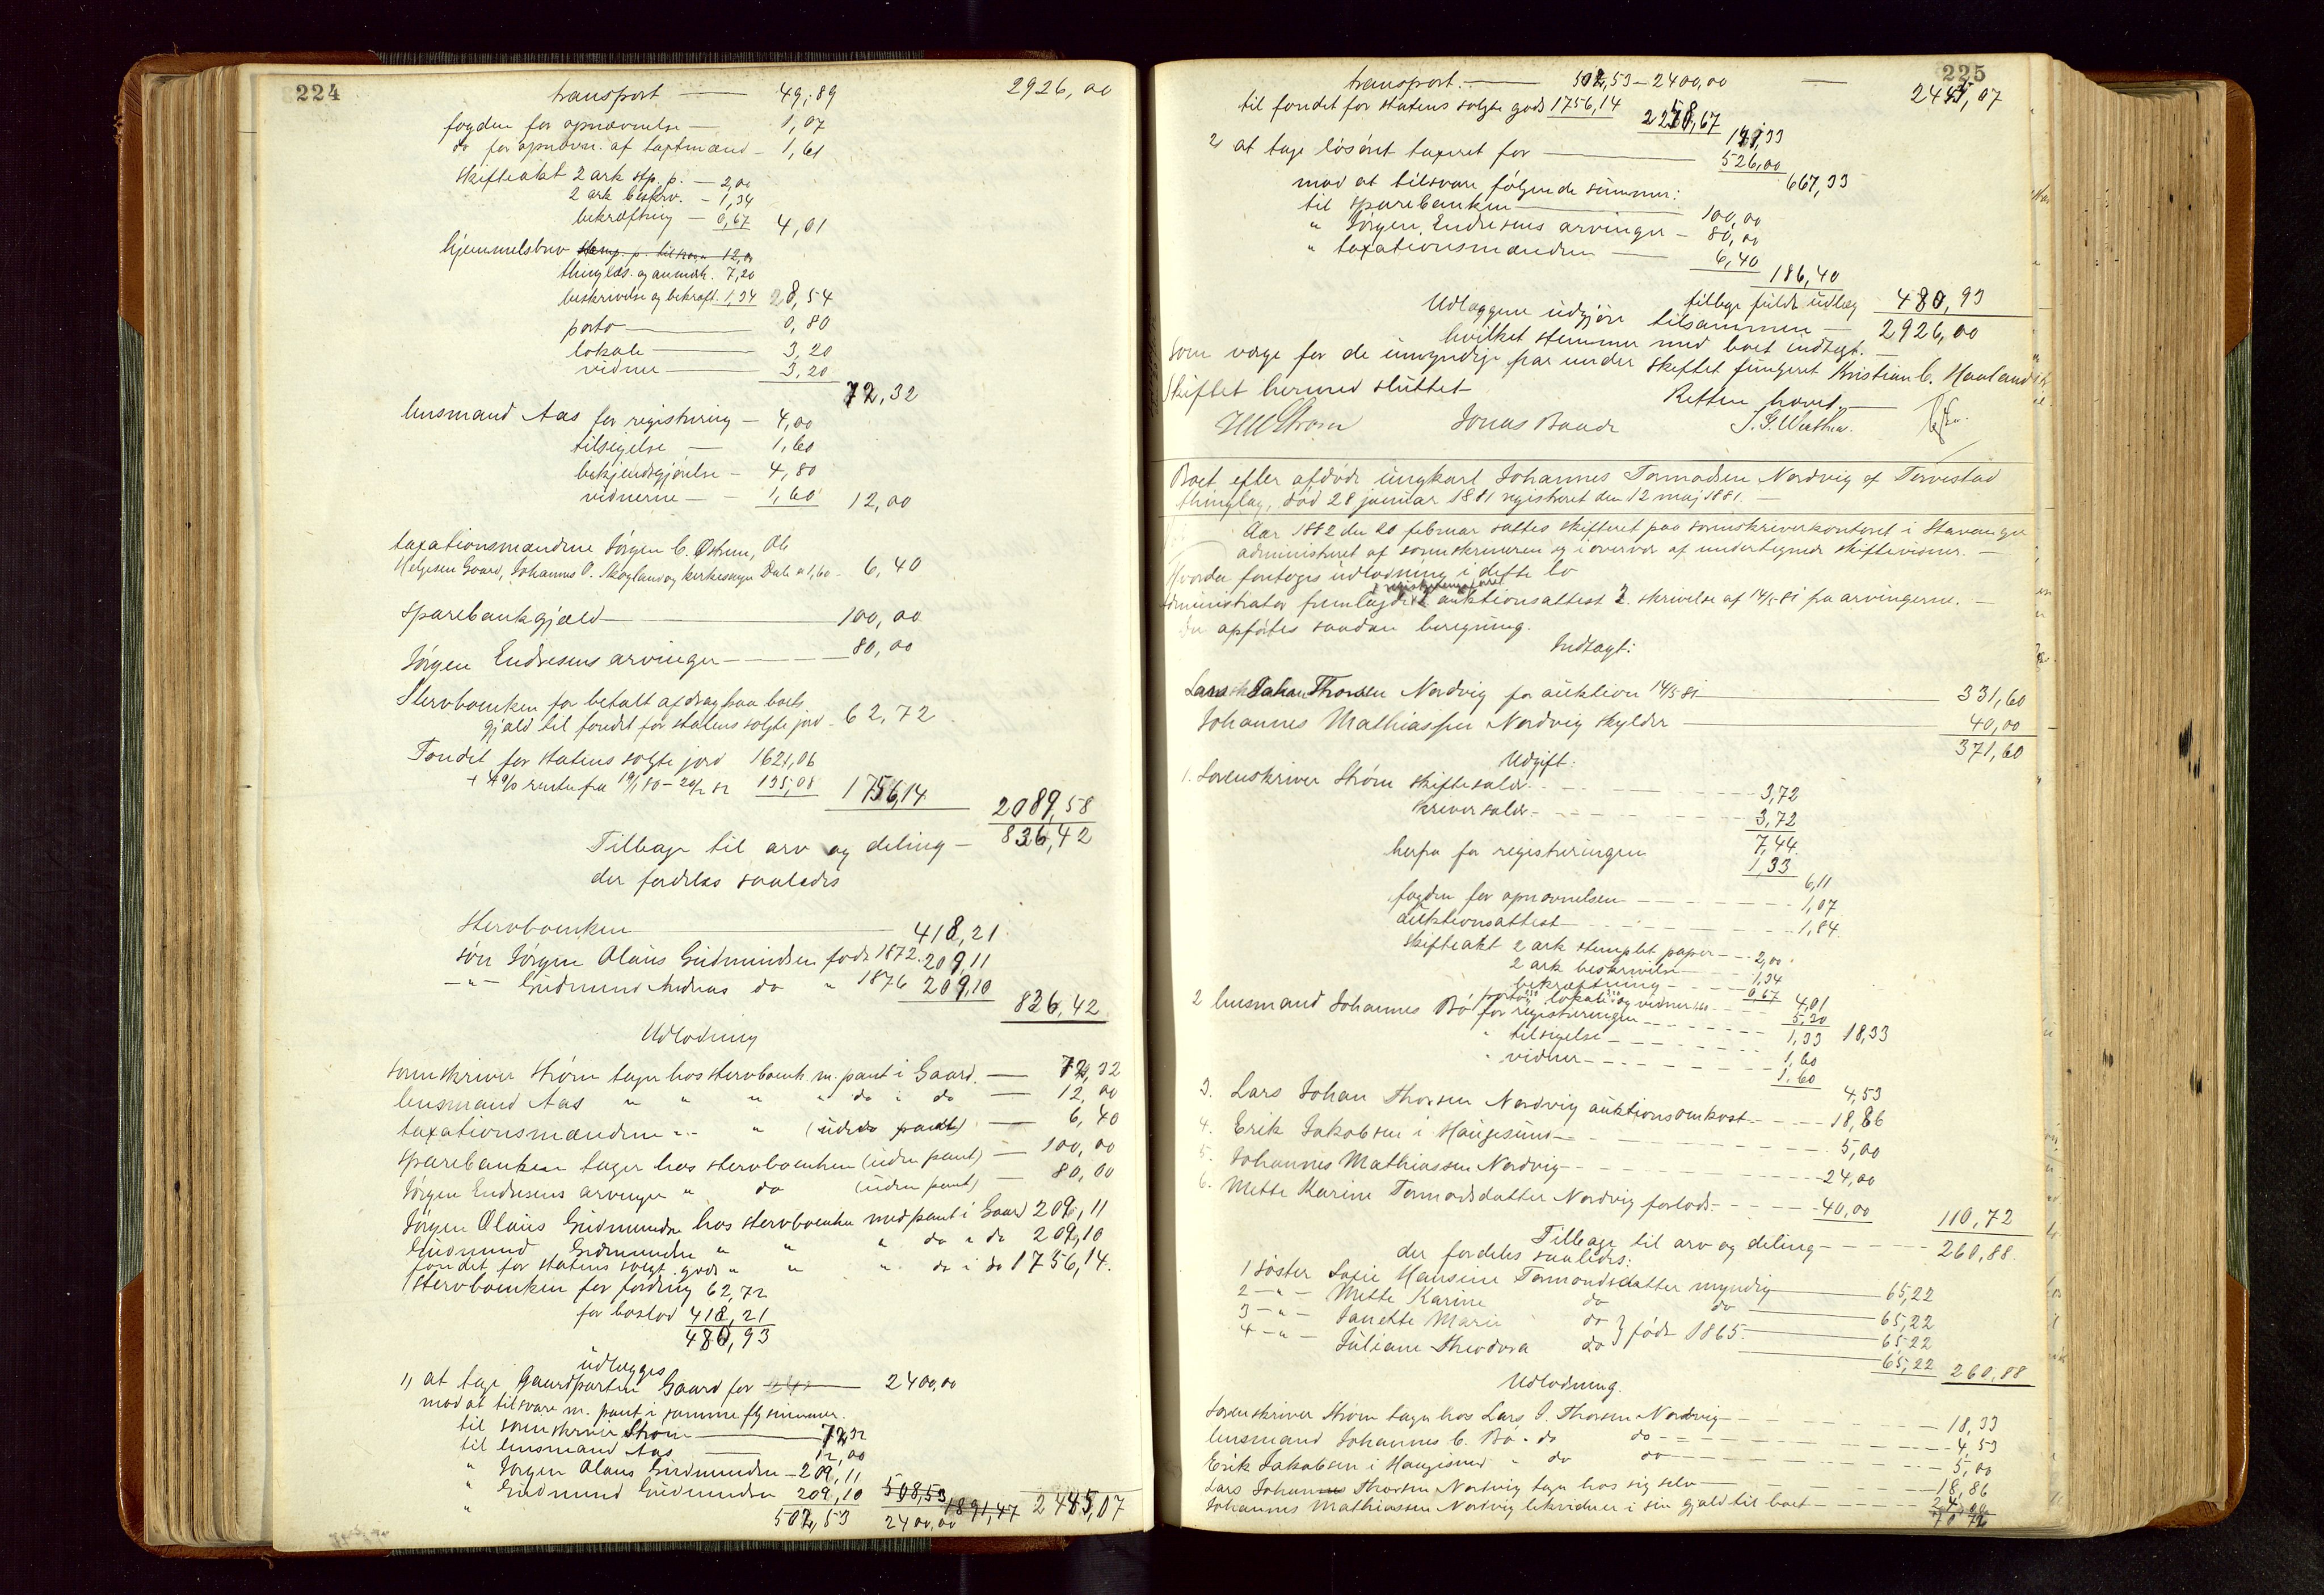 224
transport — 49,89 2926,00
fogden for opnævnelse — 1,07
do for opnævn. af taxtmænd — 1,61
skifteakt 2 ark stp. p. — 2,00
2 ark beskriv. — 1,34
bekræftning — 0,67 4,01
hjemmelsbrev stemp. p. til 12,00
thinglæs. og anmærk. 7,20
beskrivelse og bekræft. 1,34 28,54
porto — 0,80
lokale — 3,20
vidne — 3,20
72,32
lensmand Aas for registrering — 4,00
tilsigelse — 1,60
bekjendtgjørelse — 4,80
vidnerne — 1,60 12,00
taxationsmændene Jørgen C. Østhuus, Ole
Helgesen Gaard, Johannes O. Skogland og kirkesanger Dale a 1,60 — 6,40
sparebankgjæld — 100,00
Jørgen Endresens arvinger — 80,00
Stervboenken for betalt afdrag paa boets
gjæld til fondet for statens solgte jord — 62,72
Fondet for statens solgte jord 1621,06
+ 4% rente fra 19/1 80 – 20/2 82 135,08 1756,14
2089,58
Tilbage til arv og deling — 836,42
der fordeles saaledes
stervboenken — 418,21
søn Jørgen Olaus Gudmundsen født 1872. 209,11
—"— Gudmund Andreas do " 1876 209,10
836,42
Udlodning
sorenskriver Strøm tager hos stervboenk. m. pant i Gaard. — 72,32
lensmand Aas " " " " do i do — 12,00
taxationsmændene " — " (uden pant) — 6,40
sparebanken tager hos stervboenken (uden pant) — 100,00
Jørgen Endresens arvinger " do (uden pant) — 80,00
Jørgen Olaus Gudmundsen hos stervboenken med pant i Gaard 209,11
Gudmund Gudmundsen " " " do i do 209,10
fondet for statens solgt. gods " " " do i do 1756,14.
Stervboenken for fordring 62,72
for boslod 418,21
480,93
udlægges
1, at tage Gaardparten Gaard for 2400,00
mod at tilsvare m. pant i samme flg summer.
til sorenskriver Strøm — 72,32
til lensmand Aas — 12,00
" Jørgen Olaus Gudmundsen — 209,11
" Gudmund Gudmundsen 209,10 508,53
502,53 2400,00 1891,47 2445,07
225
transport. — 502,53 — 2400,00 — 2445,07
til fondet for statens solgte gods 1756,14 2258,67
141,33
2, at tage løsøret taxeret for — 526,00
667,33
mod at tilsvare følgende summer:
til sparebanken — 100,00
" Jørgen Endresens arvinger — 80,00
" taxationsmændene — 6,40
186,40
tilbage fulde udlæg 480,93
Udlæggene udgjøre tilsammen — 2926,00
hvilket stemmer med boet indtægt. —
Som værge for de umyndige har under skiftet fungeret Kristian C. Haaland
Skiftet hermed sluttet
Retten hævet. —
Strøm Jonas Baade
Boet efter afdøde ungkarl Johannes Tormodsen Nordvig af Torvestad
thinglag, død 28 januar 1881 registreret den 12 maj 1881. —
Aar 1882 den 20 februar sattes skifteret paa sorenskriverkontoret i Stavanger
administreret af sorenskriveren og i overvær af undertegnede skiftevidner. —
Hvorda foretoges udlodning i dette bo
registreringsforr.
Administrator fremlagde 1 auktionsattest 2. skrivelse af 14/5 81 fra arvingerne. —
der opførtes saadan beregning.
Indtægt:
Lars Johan Thorsen Nordvig for auktion 14/5 81 — 331,60
Johannes Mathiassen Nordvig skylder — 40,00
371,60
Udgift:
1. Sorenskriver Strøm skiftesalær — 3,72
skriversalær — 3,72
7,44
herfra for registreringen 1,33
6,11
fogden for opnævnelsen — 1,07
auktionsattest — 1,84
skifteakt 2 ark stemplet papir — 2,00
2 ark beskrivelse — 1,34
bekræftning — 0,67 4,01
porto, lokale og vidner — 5,30
18,33
2 lensmand Johannes Bø for registreringen — 1,33
" tilsigelse — 1,60
" vidner — 1,60
4,53
3. Lars Johan Thorsen Nordvig auktionsomkost. — 18,86
4. Erik Jakobsen i Haugesund — 5,00
5. Johannes Mathiassen Nordvig — 24,00
6. Mette Karine Tormodsdatter Nordvig forlods — 40,00
110,72
Tilbage til arv og deling — 260,88.
der fordeles saaledes:
1 søster Sofie Hansine Tormodsdatter myndig — 65,22
2 —"— Mette Karine do do — 65,22
3 —"— Janette Marie do } født 1865. — 65,22
4 —"— Juliane Theodora do — 65,22 260,88
Udlodning.
sorenskriver Strøm tager hos Lars J. Thorsen Nordvig — 18,33
lensmand Johannes C. Bø " do do — 4,53
Erik Jakobsen i Haugesund " do do — 5,00
Lars Johan Thorsen Nordvig tager hos sig selv — 18,86
Johannes Mathiassen Nordvig likviderer i sin gjæld til boet — 24,00
70,72